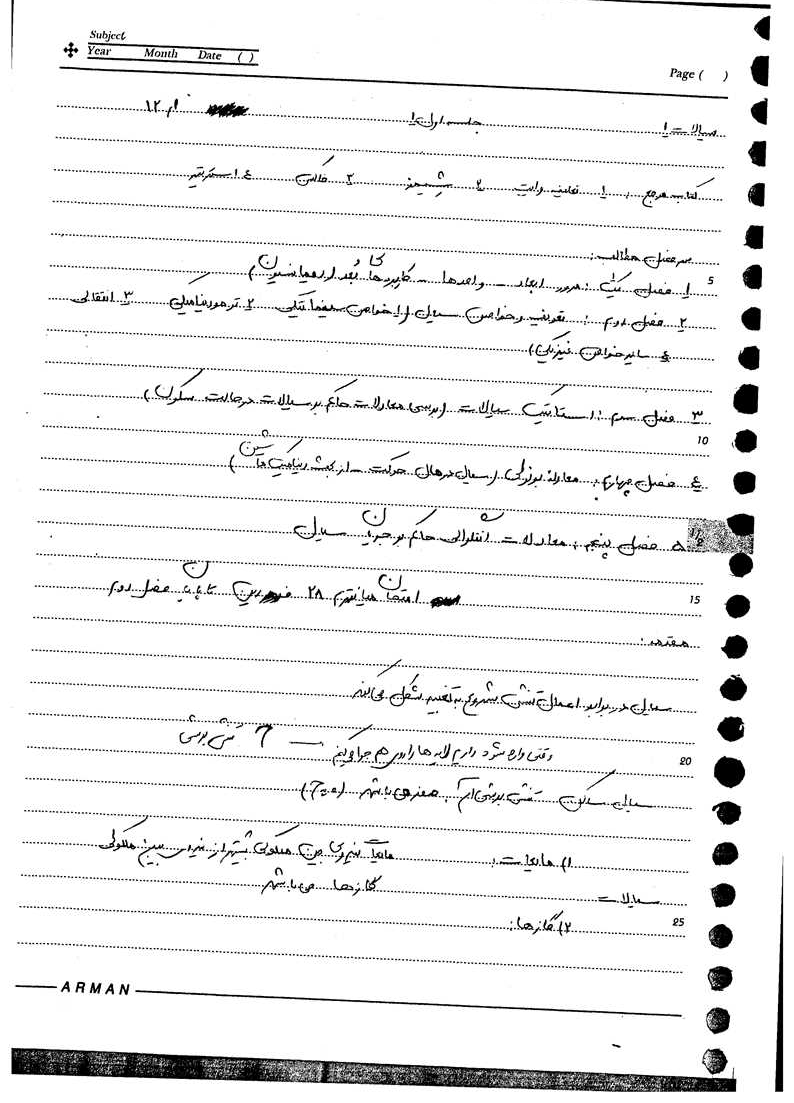 Subject
Year Month Date ( )
Page ( )
سیالات ۱ جلسه اول ۱
کتاب مرجع : ۱ ۲ شیمز ۳ ۴ استریتر
سرفصل مطالب :
5
۱ فصل یک : مرور ابعاد - واحدها - کاربردها
۲ فصل دوم : تعریف و خواص سیال (۱ خواص سینماتیکی ۲ ترمودینامیکی ۳ انتقالی
۴ سایر خواص فیزیکی)
۳ فصل سوم : استاتیک سیالات (بررسی معادلات حاکم بر سیالات در حالت سکون)
10
۴ فصل چهارم : معادله برنولی (سیال در حال حرکت - از بحث دینامیک)
۵ فصل پنجم : معادلات انتگرالی حاکم بر جریان سیال
امتحان میانترم ۲۸ فروردین تا پایان فصل دوم
15
مقدمه :
سیال در برابر اعمال تنش شروع به تغییر شکل می‌کند
وقتی وارد شود داریم لایه ها را روی هم جا می‌کنیم تنش برشی
20
سیال ساکن تنش برشی آن صفر می باشد
۱) مایعات : مایعات نیروی بین مولکولی بیشتر از نیروی بین مولکولی
گازها می باشد
سیالات
۲) گازها :
25
ARMAN